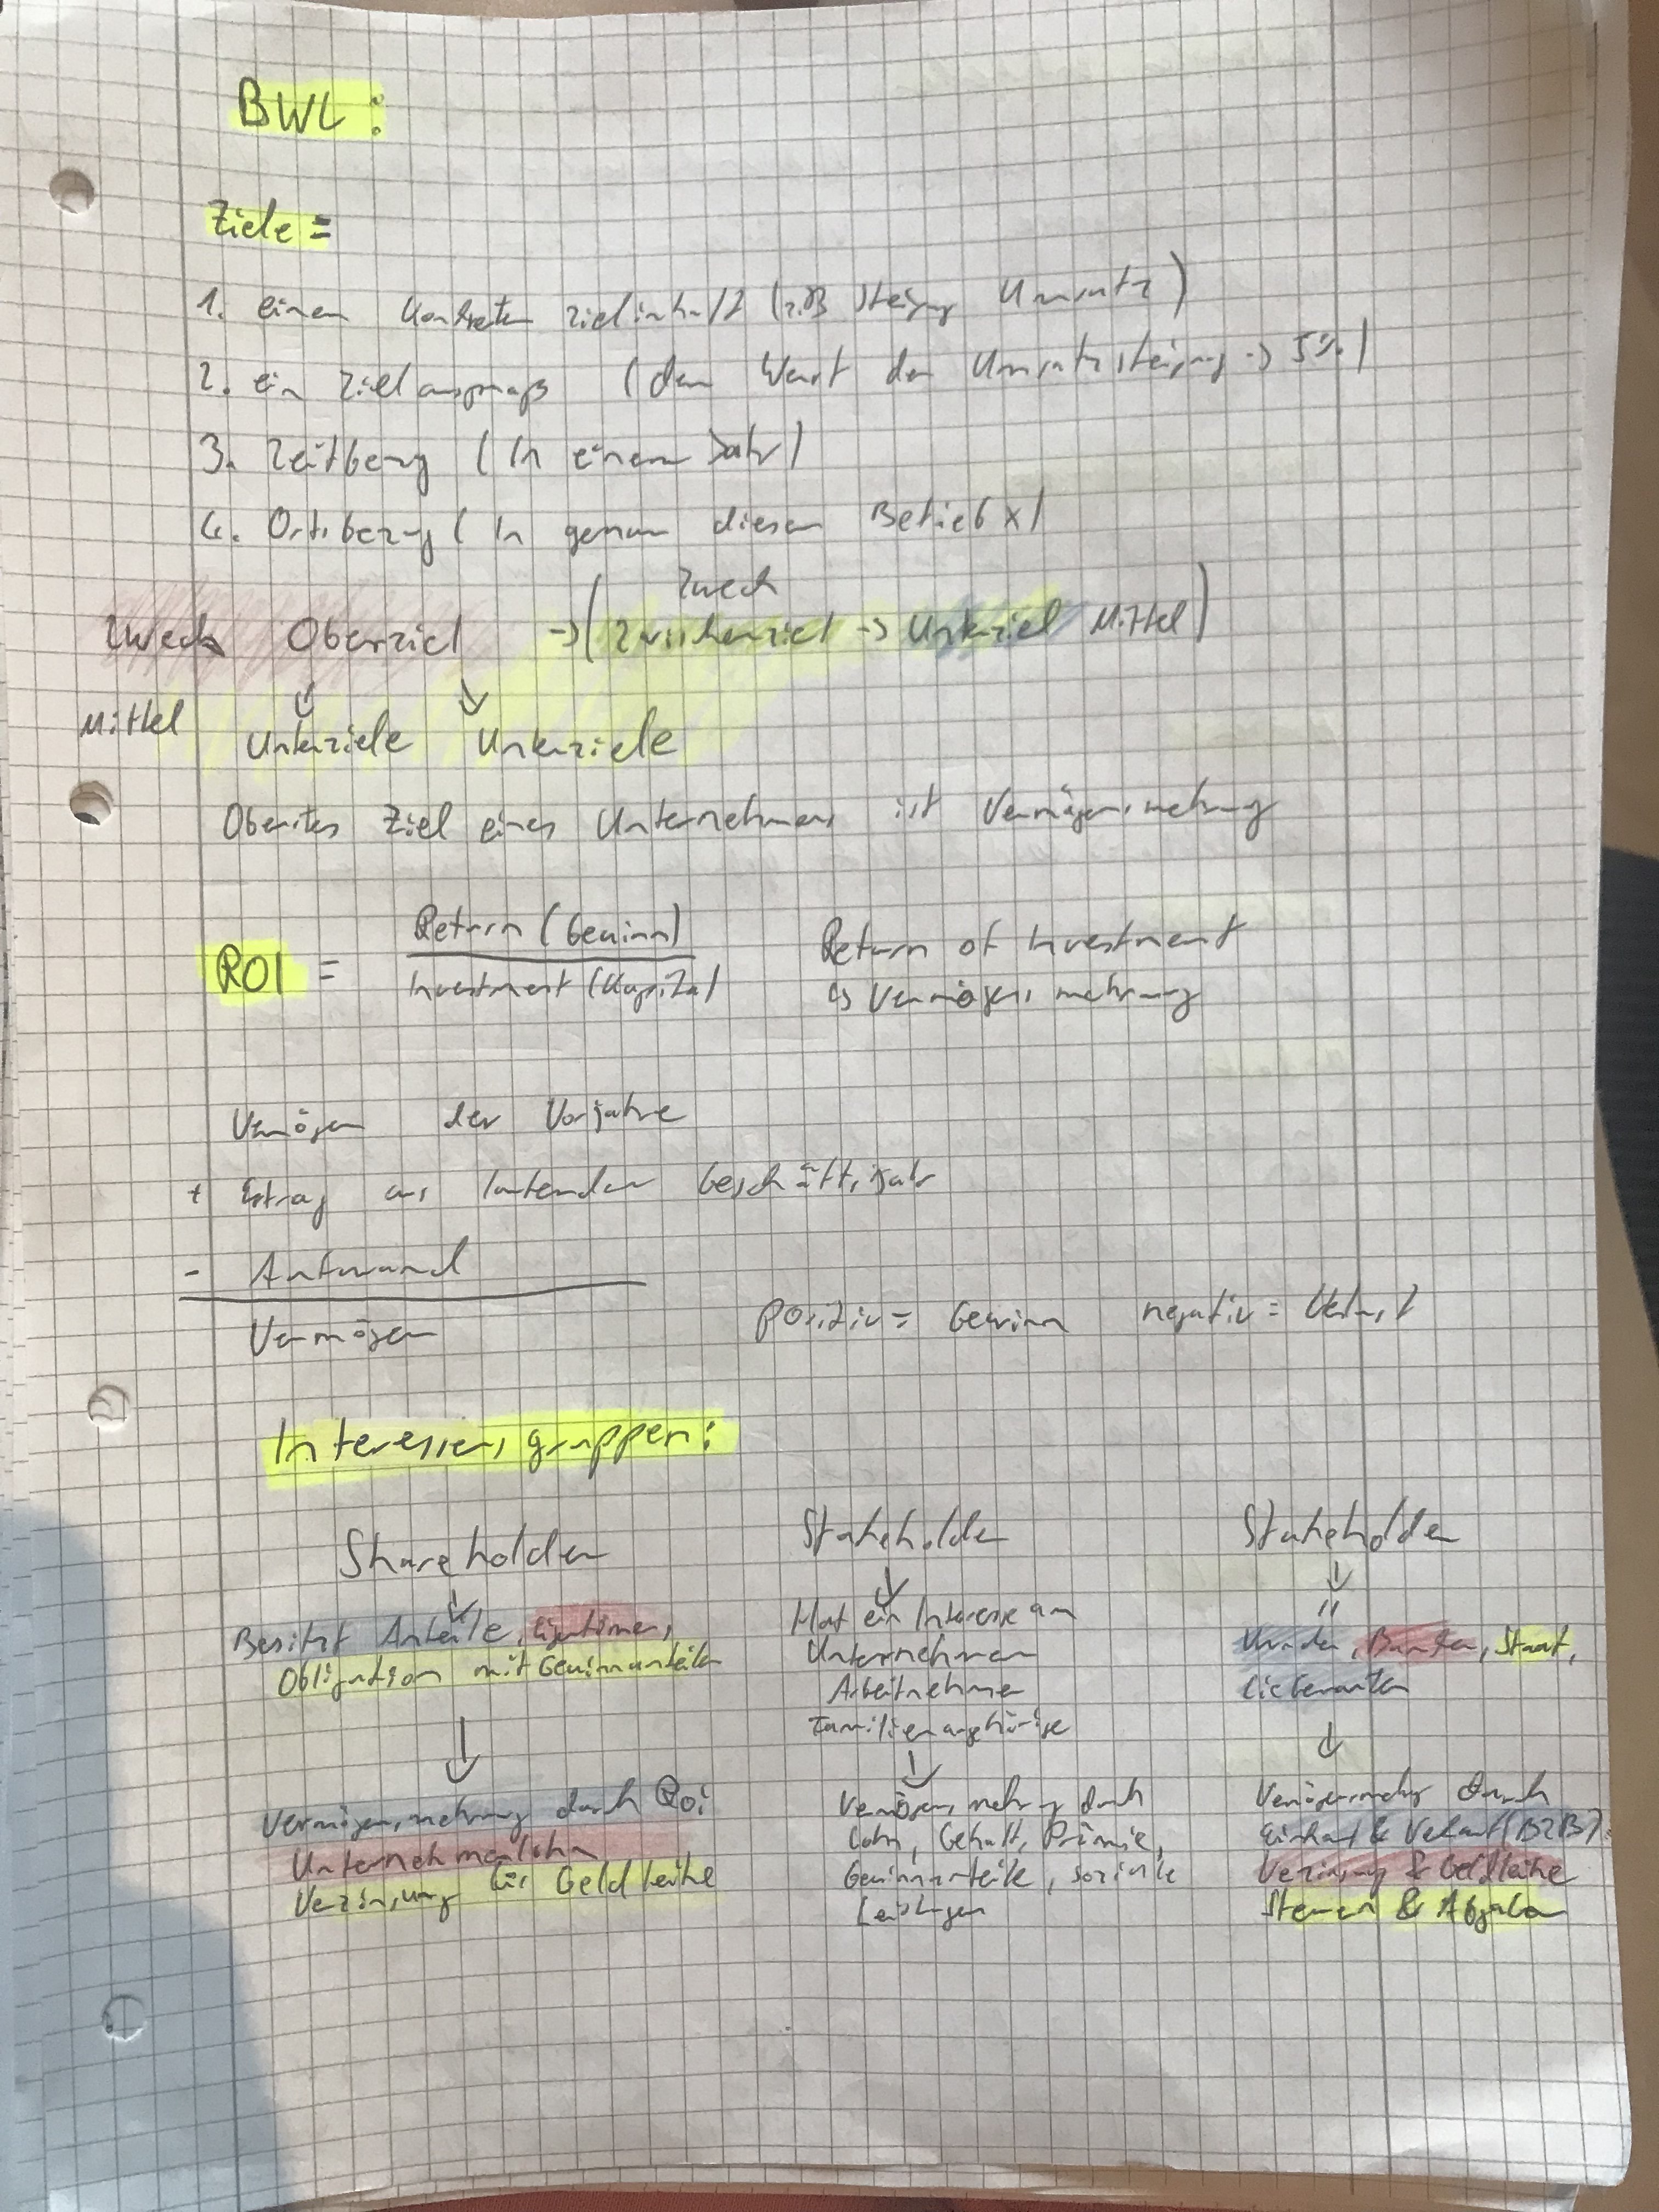 BWL:
Ziele =
1. einen konkreten Zielinhalt (z.B Steigung Umsatz)
2. ein Zielausmaß (den Wert der Umsatzsteigung -> 5%)
3. Zeitbezug (In einem Jahr)
4. Ortsbezug (In genau diesem Betieb x)
Zweck
Zweck Oberziel -> (Zwischenziel -> Unterziel Mittel)
Mittel Unterziele Unterziele
Oberstes Ziel eines Unternehmens ist Vermögensmehrung
ROI = Return (Gewinn)
Investment (Kapital)
Return of Investment
↳ Vermögensmehrung
Vermögen der Vorjahre
+ Ertrag aus laufenden Geschäftsjahr
- Aufwand
Vermögen positiv = Gewinn negativ = Verlust
Interessensgruppen:
Shareholder
Besitzt Anteile, Eigentümer,
Obligation mit Gewinnanteilen
Vermögensmehrung durch Roi
Unternehmerlohn
Verzinsung für Geldleihe
Stakeholder
Hat ein Interesse am
Unternehmen
Arbeitnehmer
Familienangehörige
Vermögensmehrung durch
Lohn, Gehalt, Prämie,
Gewinnanteile, soziale
Leistungen
Stakeholder
"
Kunden, Banken, Staat,
Lieferanten
Vermögensmehrung durch
Einkauf & Verkauf (B2B)
Verzinsung & Geldleihe
Steuern & Abgaben